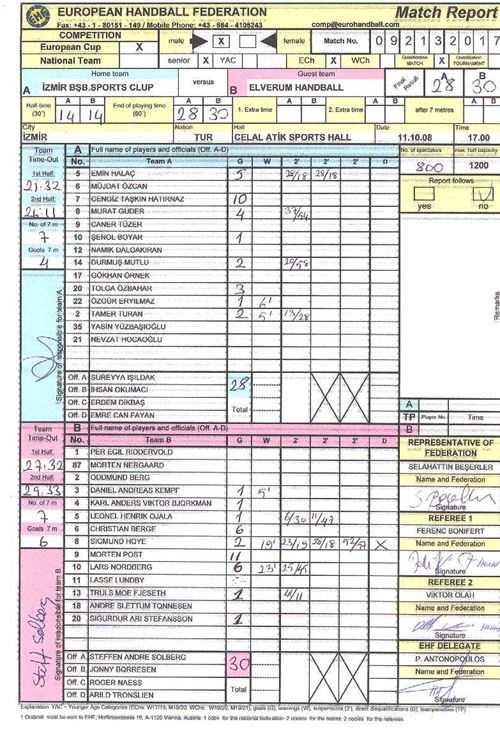 EUROPEAN HANDBALL FEDERATION
Match Report
Fax: +43 - 1 - 80151 - 149 / Mobile Phone: +43 - 664 - 4105243 comp@eurohandball.com
COMPETITION male X female Match No. 0 9 2 1 3 2 0 1 7
European Cup X
National Team senior X YAC ECh X WCh Qualification MATCH X Qualification TOURNAMENT
Home team versus Guest team Final Result A B
A İZMİR BŞB.SPORTS CLUP B ELVERUM HANDBALL 28 30
Half time (30') A B 14 14 End of playing time (60') A B 28 30 1. Extra time A B 2. Extra time A B after 7 metres A B
City Nation Hall Date Time
İZMİR TUR CELAL ATİK SPORTS HALL 11.10.08 17.00
Team A Full name of players and officials (Off. A-D) No. of spectators max. hall capacity
Time-Out No. Team A G W 2' 2' 2' D 800 1200
1st Half 5 EMİN HALAÇ 5 28/18 28/18 Report follows
21:32 6 MÜJDAT ÖZCAN
2nd Half 7 CENGİZ TAŞKIN HATIRNAZ 10 yes no
26:11 8 MURAT GÜDER 4 37/54
No. of 7 m 9 CANER TÜZER
7 10 ŞENOL BOYAR 1
Goals 7 m 12 NAMIK DALGAKIRAN
4 14 DURMUŞ MUTLU 2
17 GÖKHAN ÖRNEK
20 TOLGA ÖZBAHAR 3
22 ÖZGÜR ERYILMAZ 1 6'
2 TAMER TURAN 2 5' 13/28
35 YASİN YÜZBAŞIOĞLU
21 NEVZAT HOCAOĞLU
Signature of responsible for team A
Remarks
Off. A SÜREYYA IŞILDAK 28
Off. B İHSAN OKUMACI
Off. C ERDEM DİKBAŞ Total
Off. D EMRE CAN FAYAN
A
TP Player No. Time
B
Team B Full name of players and officials (Off. A-D)
Time-Out No. Team B G W 2' 2' 2' D
1st Half 1 PER EGIL RIDDERVOLD
27:32 87 MORTEN NERGAARD
2nd Half 2 ODDMUND BERG
29:33 3 DANIEL ANDREAS KEMPF 1 5'
No. of 7 m 4 KARL ANDERS VIKTOR BJORKMAN 1
7 5 LEONEL HENRIK OJALA 1 6/30 11/47
Goals 7 m 6 CHRISTIAN BERGE 6
6 8 SIGMUND HOYE 2 19' 23/19 28/18 52/57 X
9 MORTEN POST 11
10 LARS NORDBERG 6 23' 25/45
11 LASSE LUNDBY
13 TRULS MOE FJESETH 1
18 ANDRE SLETTUM TONNESEN
20 SIGURDUR ARI STEFANSSON 1
Signature of responsible for team B
Off. A STEFFEN ANDRE SOLBERG 30
Off. B JONNY BORRESEN
Off. C ROGER NAESS Total
Off. D ARILD TRONSLIEN
REPRESENTATIVE OF FEDERATION
SELAHATTİN BEŞERLER
Name and Federation
Signature
REFEREE 1
FERENC BONIFERT
Name and Federation
Signature
REFEREE 2
VIKTOR OLAH
Name and Federation
Signature
EHF DELEGATE
P. ANTONOPOULOS
Name and Federation
Signature